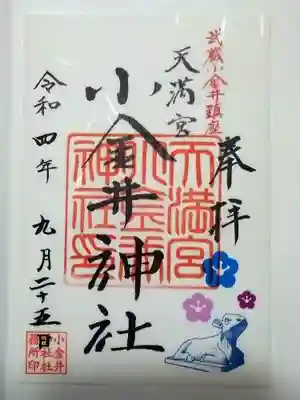 武蔵小金井鎮座
奉拝
天満宮
小金井神社
令和四年 九月二十五日
天満宮
小金井
神社印
小金井
神社社
務所印